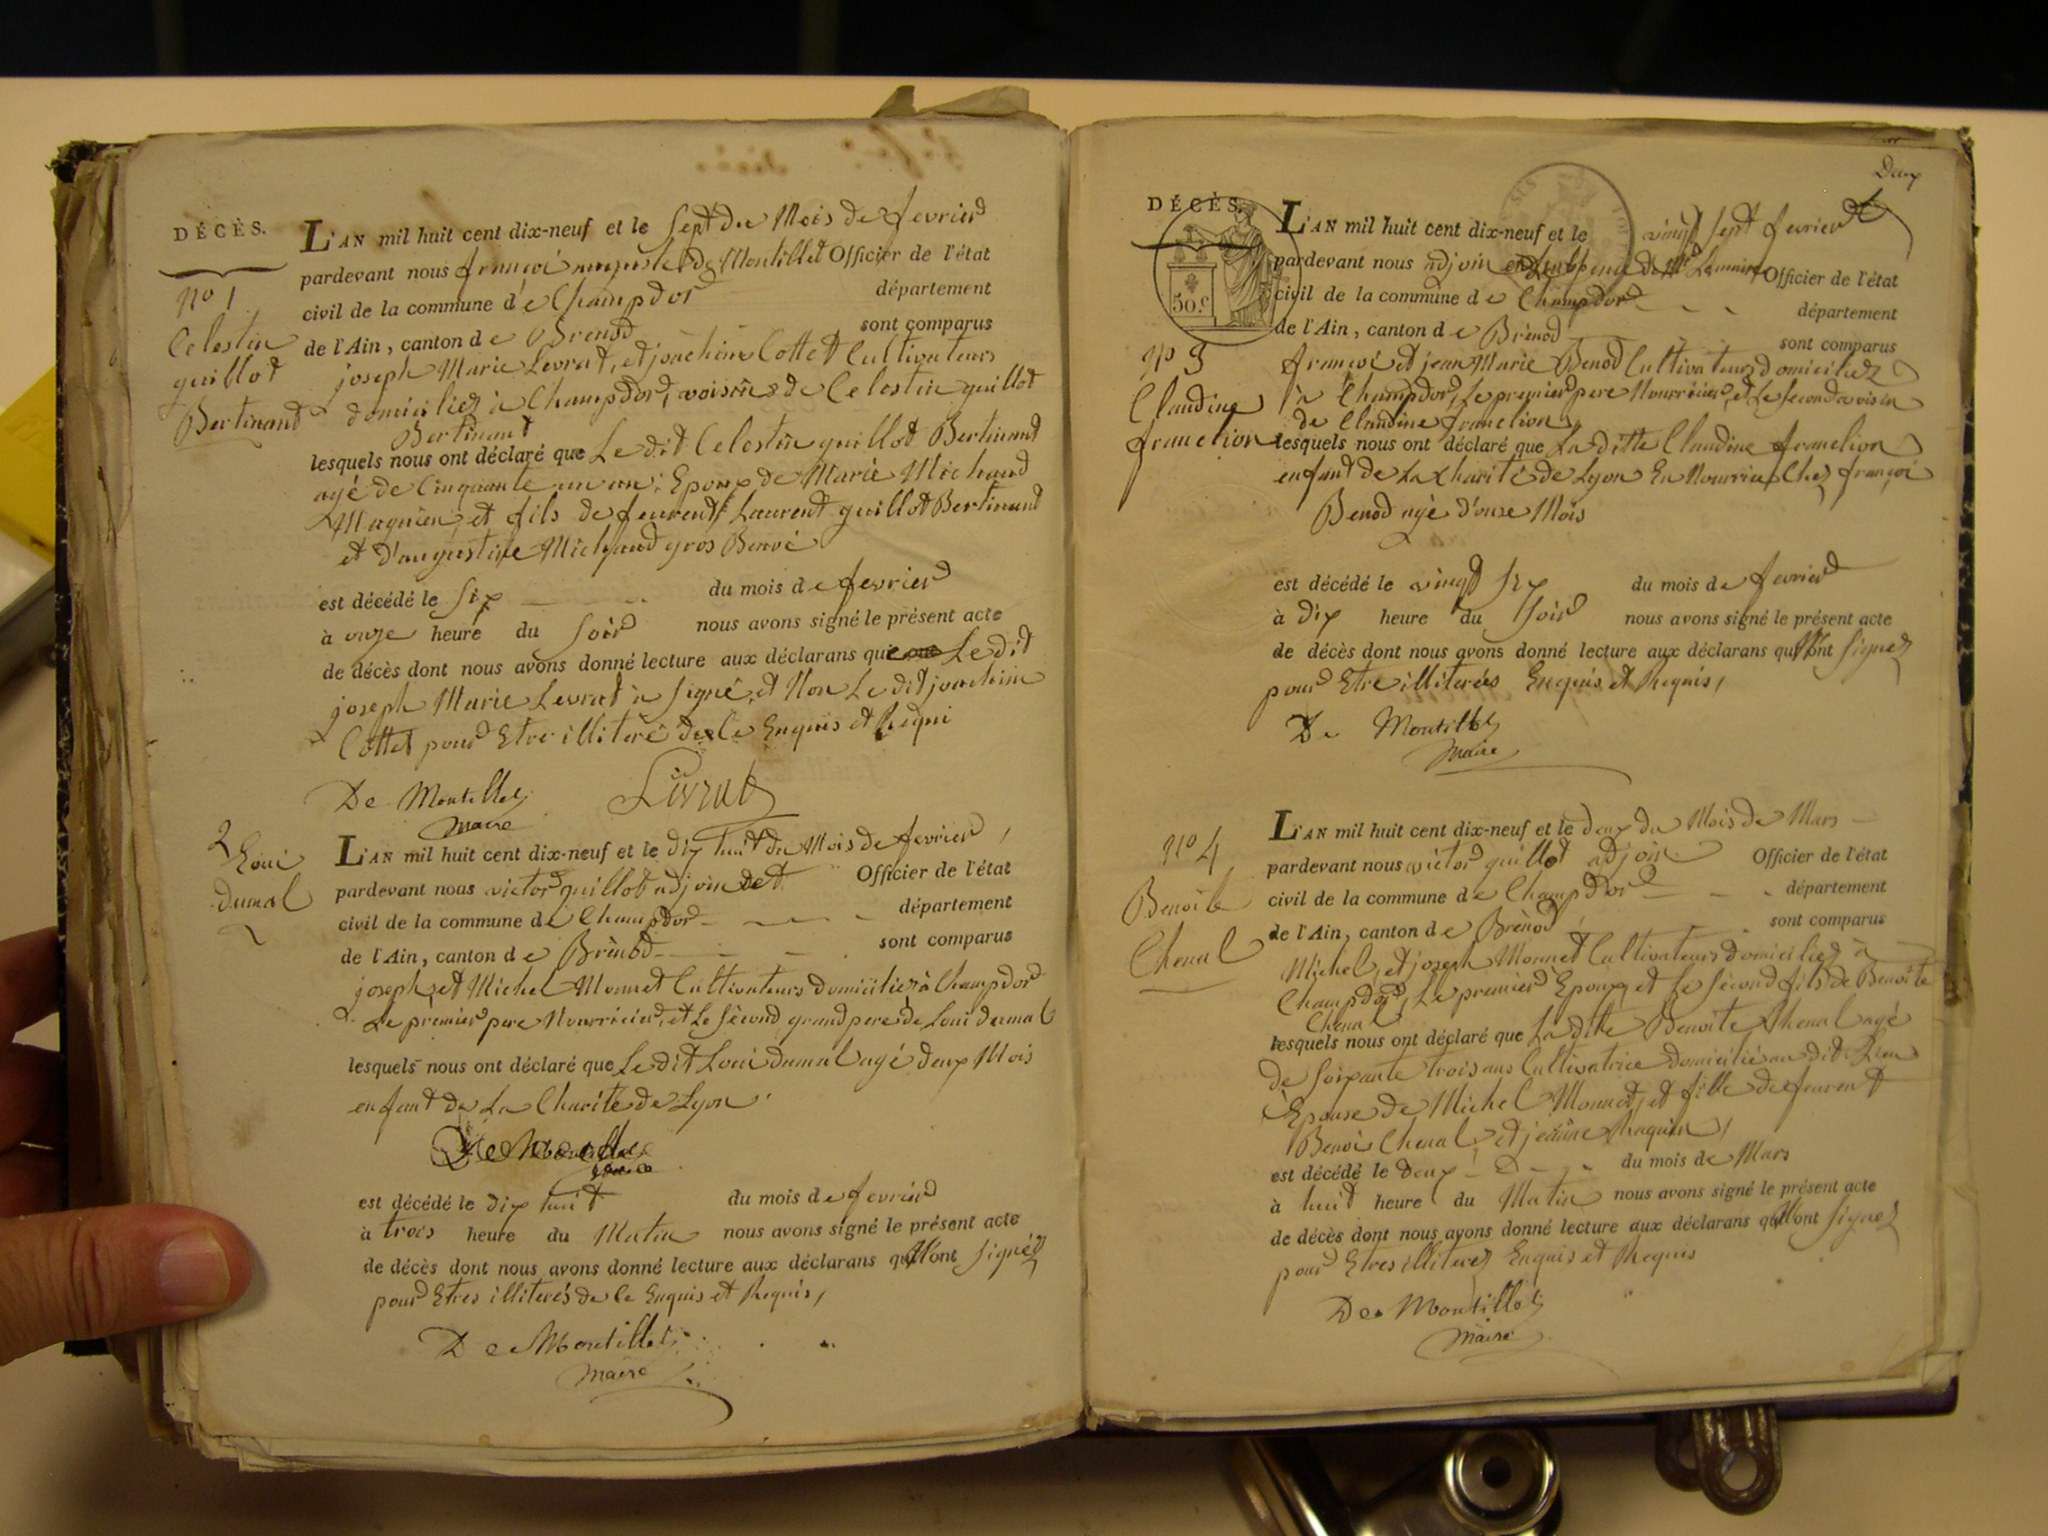 DÉCÈS.
No 1
Celestin
guillot
Bertinand
L'AN mil huit cent dix-neuf et le Sept du Mois de fevrier
pardevant nous françoi auguste de Montillet Officier de l'état
civil de la commune de Champdor département
de l'Ain, canton de Brenod sont comparus
joseph Marie Levrat, et joachim Cottet Cultivateurs
domiciliez à Champdor, voisins de Celestin guillot
Bertinant
lesquels nous ont déclaré que Le dit Celestin guillot Bertinand
agé de Cinquante un an, Epoux de Marie Michaud
Magnien, et fils de feurent Laurent guillot Bertinand
et d'augustine Michaud gros Benoi
est décédé le Six du mois de fevrier
à onze heure du Soir nous avons signé le présent acte
de décès dont nous avons donné lecture aux déclarans que Le dit
joseph Marie Levrat à Signé, et Non Le dit joachim
Cottet pour Etre illiteré de Ce Enquis et Requi
De Montillet Livrat
Maire
2
Loui
dumal
L'AN mil huit cent dix-neuf et le dix huit du Mois de fevrier,
pardevant nous victor guillot adjoin Officier de l'état
civil de la commune de Champdor département
de l'Ain, canton de Brènod sont comparus
joseph, et Michel Monnet Cultivateurs domiciliez à Champdor
Le premier pere Nourricier, et Le Sècond grand pere de Loui dumal
lesquels nous ont déclaré que Le dit Loui dumal agé deux Mois
enfant de La Charité de Lyon
De Montillet
maire
est décédé le dix huit du mois de fevrier
à trois heure du Matin nous avons signé le présent acte
de décès dont nous avons donné lecture aux déclarans qui N'ont Signéz
pour Etres illiterés de Ce Enquis et Requis,
De Montillet
Maire
Deux
DÉCÈS.
50 c.
No 3
Claudine
franclion
L'AN mil huit cent dix-neuf et le vingt sept fevrier
pardevant nous adjoin en L'abscence de Mr Le maire Officier de l'état
civil de la commune de Champdor département
de l'Ain, canton de Brènod sont comparus
françoi et jean Marie Benod Cultivateurs domiciliez
à Champdor, Le premier pere Nourricier, et Le Second voisin
de Claudine franclion,
lesquels nous ont déclaré que La ditte Claudine franclion
enfant de La Charité de Lyon En Nourrice Chez françoi
Benod agé d'onse Mois
est décédé le vingt Six du mois de fevrier
à dix heure du Soir nous avons signé le présent acte
de décès dont nous avons donné lecture aux déclarans qui N'ont Signez
pour Etre illiterés Enquis et Requis,
De Montillet
Maire
No 4
Benoite
Chenal
L'AN mil huit cent dix-neuf et le deux du Mois de Mars
pardevant nous victor guillot adjoin Officier de l'état
civil de la commune de Champdor département
de l'Ain, canton de Brènod sont comparus
Michel, et joseph Monnet Cultivateurs domiciliez à
Champdor, Le premier Epoux, et Le Sècond fils de Benoite
Chenal
lesquels nous ont déclaré que La dite Benoite Chenal agé
de Soixante trois ans Cultivatrice domiciliée au dit Lieu
Epouse de Michel Monnet, et fille de feurent
Benoi Chenal, et jeanne Maquin,
est décédé le deux du mois de Mars
à huit heure du Matin nous avons signé le présent acte
de décès dont nous avons donné lecture aux déclarans qui N'ont Signez
pour Etres illiterez Enquis et Requis
De Montillet
Maire